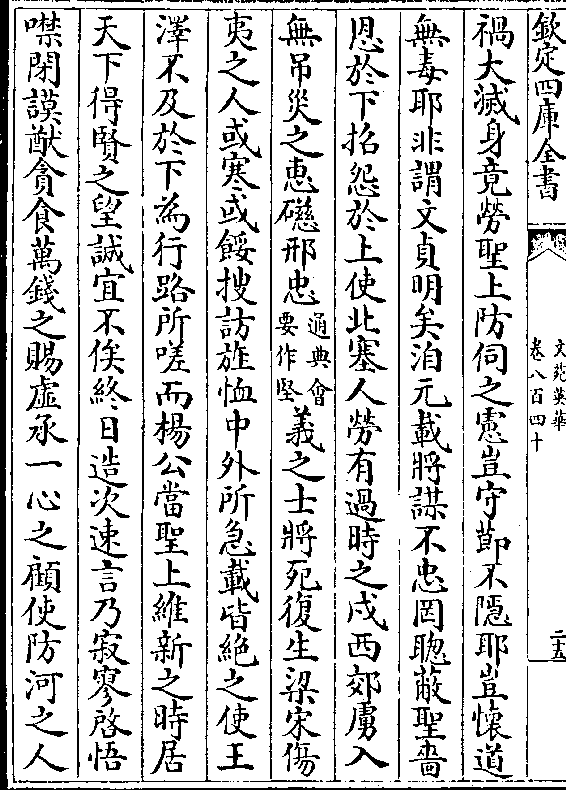 欽定四庫全書
文苑英華
卷八百四十
二五
禍大滅身竟勞聖上防伺之憲豈守節不隱耶豈懷道
無毒耶非謂文貞明矣洎元載將謀不忠罔聰蔽聖嗇
恩於下招怨於上使北塞人勞有過時之戍西郊虜入
無弔災之恵礠邢忠通典會要作堅義之士將死復生梁宋傷
夷之人或寒或餒搜訪旌恤中外所急載皆絶之使王
澤不及於下為行路所嗟而楊公當聖上維新之時居
天下得賢之望誠宜不俟終日造次速言乃寂寥啓悟
噤閉謨猷貪食萬錢之賜虛承一心之顧使防河之人